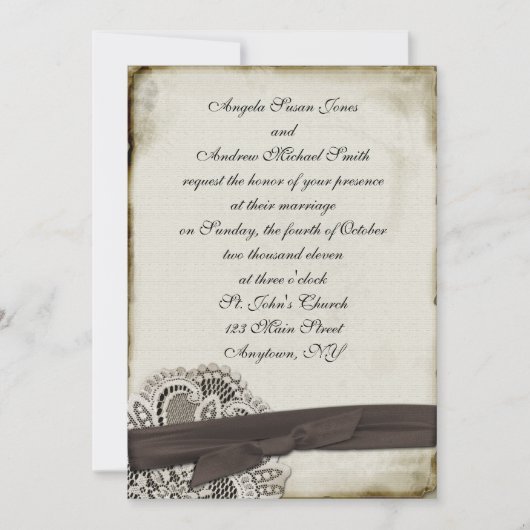 Angela Susan Jones
and
Andrew Michael Smith
request the honor of your presence
at their marriage
on Sunday, the fourth of October
two thousand eleven
at three o'clock
St. John's Church
123 Main Street
Anytown, NY